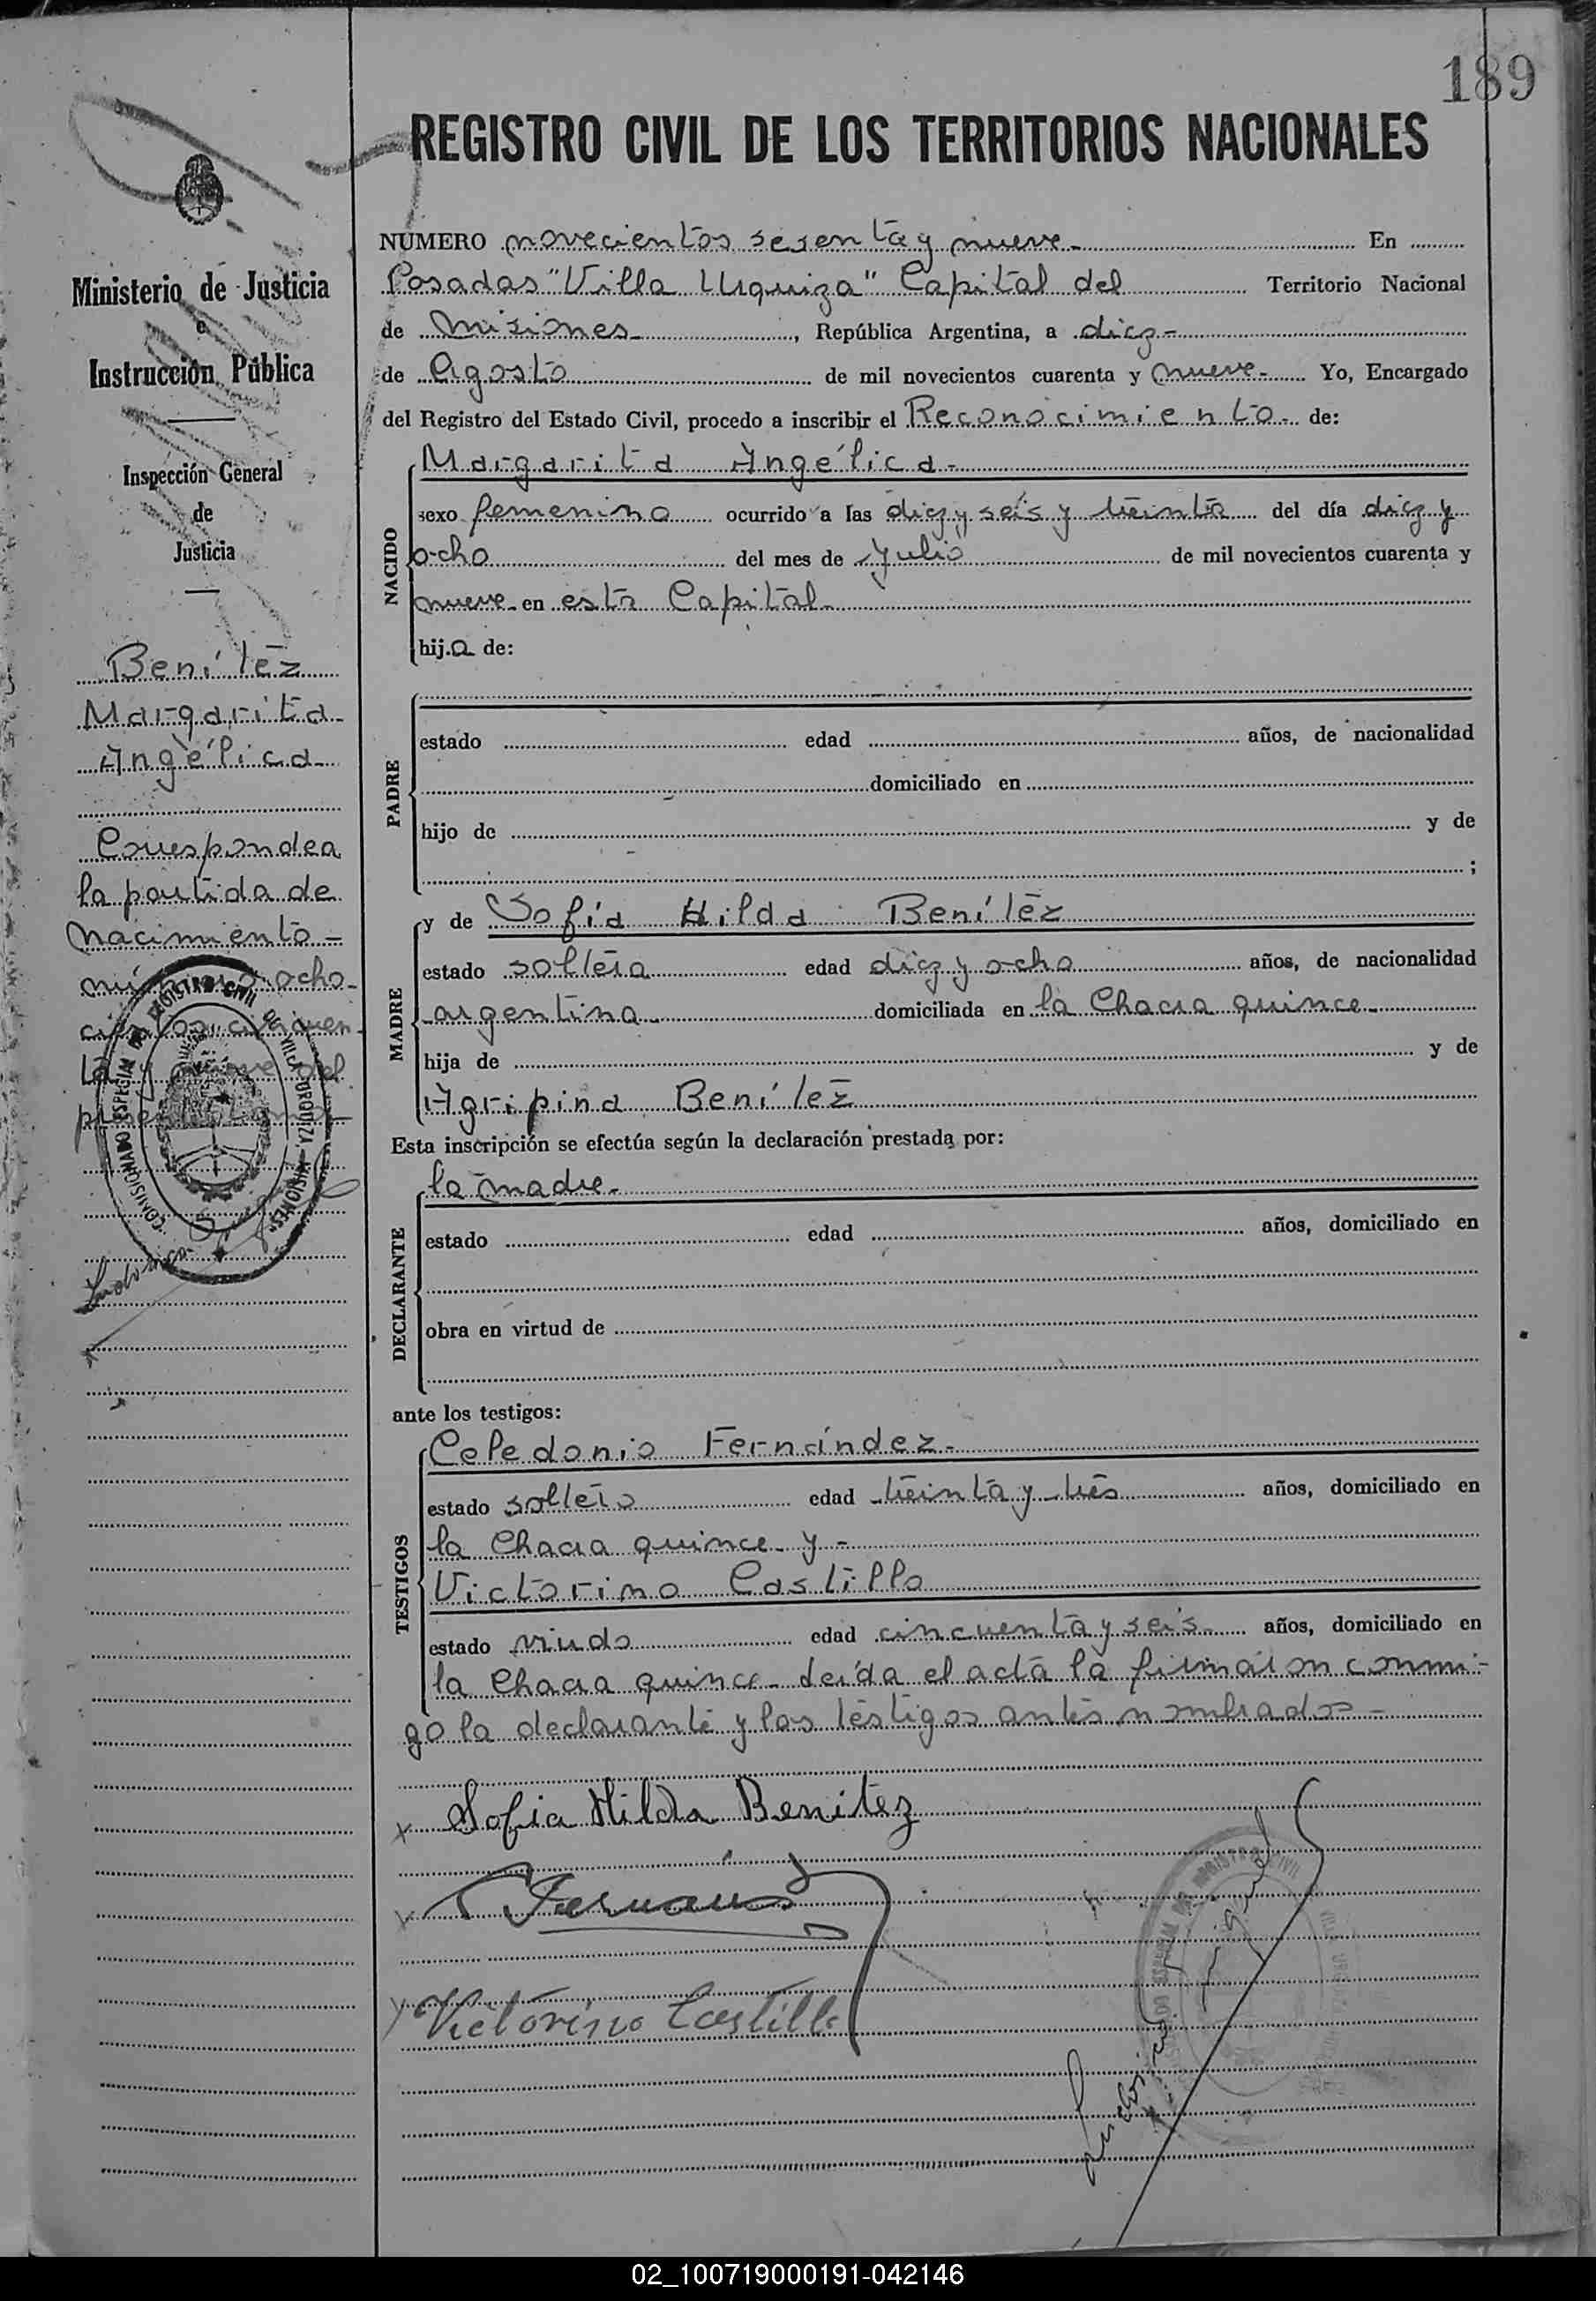 189
REGISTRO CIVIL DE LOS TERRITORIOS NACIONALES
Ministerio de Justicia
e
Instrucción Pública
Inspección General
de
Justicia
Benítez
Margarita
Angélica
Corresponde a
la partida de
Nacimiento -
número ocho-
cientos cincuen-
ta y del
presente año-
COMISIONADO ESPECIAL DEL REGISTRO CIVIL DE VILLA URQUIZA - MISIONES-
NUMERO novecientos sesenta y nueve- En
Posadas "Villa Urquiza" Capital del Territorio Nacional
de Misiones, República Argentina, a diez-
de Agosto de mil novecientos cuarenta y nueve- Yo, Encargado
del Registro del Estado Civil, procedo a inscribir el Reconocimiento- de:
NACIDO
Margarita Angélica-
sexo femenino ocurrido a las diez y seis y treinta del día diez y
ocho del mes de Julio de mil novecientos cuarenta y
nueve- en esta Capital-
hija de:
PADRE
estado edad años, de nacionalidad
domiciliado en
hijo de y de
;
MADRE
y de Sofía Hilda Benítez
estado soltera edad diez y ocho años, de nacionalidad
argentina domiciliada en la Chacra quince-
hija de y de
Agripina Benítez
Esta inscripción se efectúa según la declaración prestada por:
DECLARANTE
la madre-
estado edad años, domiciliado en
obra en virtud de
ante los testigos:
TESTIGOS
Celedonio Fernández-
estado soltero edad treinta y tres años, domiciliado en
la Chacra quince- y -
Victorino Castillo
estado viudo edad cincuenta y seis años, domiciliado en
la Chacra quince- Leída el acta la firmaron conmi-
go la declarante y los testigos antes nombrados-
Sofia Hilda Benitez
Victorino Castillo
02_100719000191-042146